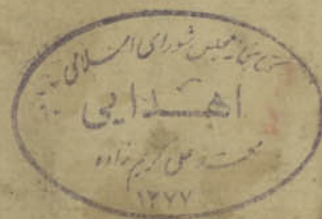 کتابخانه مجلس شورای اسلامی
اهدایی
محمد علی کریم زاده
۱۲۷۷